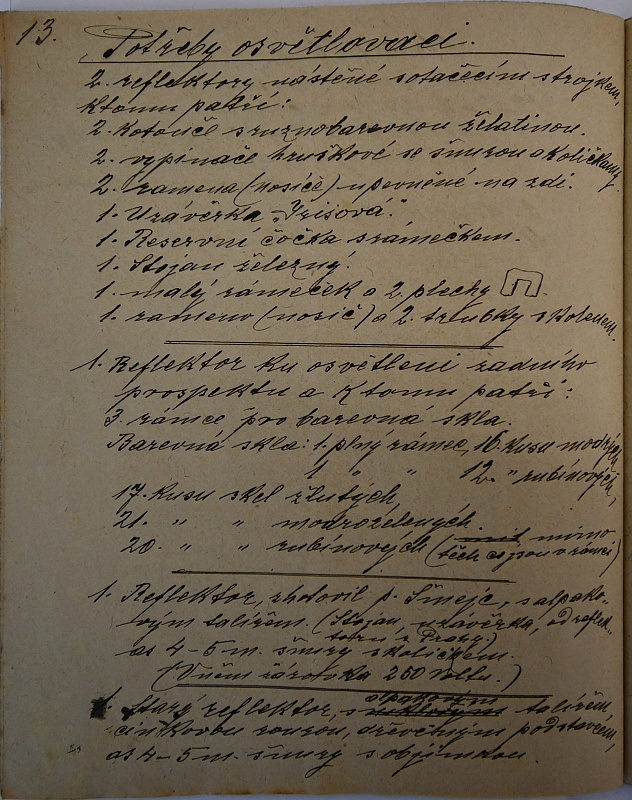 13.
Potřeby osvětlovací.
2. reflektory nástěné s otáčecím strojkem,
k tomu patří:
2. Kotouče s různobarevnou želatinou.
2. vypinače hruškové se šňůrou a količkamy.
2. ramena (nosiče) upevněné na zdi.
1. Uzávěrka "Irisová."
1. Reservní čočka s rámečkem.
1. Stojan železný.
1. malý rámeček a 2. plechy
1. rameno (nosič) a 2. trubky s kolenem.
1. Reflektor ku osvětlení zadního
prospektu a k tomu patří:
3. rámce pro barevná skla.
Barevná skla: 1. plný rámec, 16. kusu modrých
1 " " 12. " rubínových,
17. kusu skel žlutých
21. " " modrozelených.
20. " " rubínových (mimo
těch co jsou v rámci)
1. Reflektor, zhotovil p. Šmejc, s alpako-
vým talířem. (Stojan, uzávěrka, od reflek-
toru z Prahy.)
as 4-5 m. šňury s količkem.
(V něm žárovka 250 Voltu.)
1. Starý reflektor, s alpakovým talířem
cinkovou rourou, dřevěným podstavcem,
as 4-5 m. šňury s objimkou.